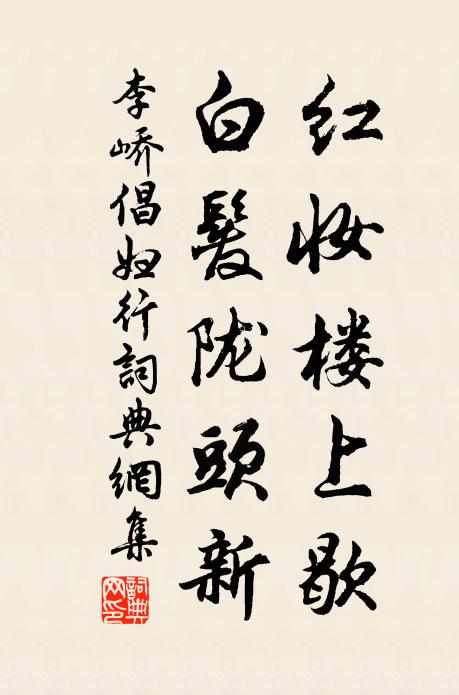 红妆楼上歇
白髮陇頭新
李峤倡妇行詞典網集
詞典网印